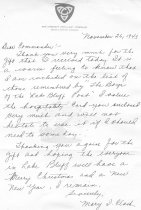 November 26, 1945
Dear Commander:
Thank you very much for the
gift that I received today. It is
a warm feeling to know that
I am included on the list of
those remembered by the Boys
of the Lake Bluff Post. I receive
the hospitality card you enclosed
very much and will not
hesitate to use it if I should
need to some day.
Thanking you again for the
gift and hoping the everyone
in Lake Bluff will have a
Merry Christmas and a New
New Year, I remain,
Sincerely,
Mary I.